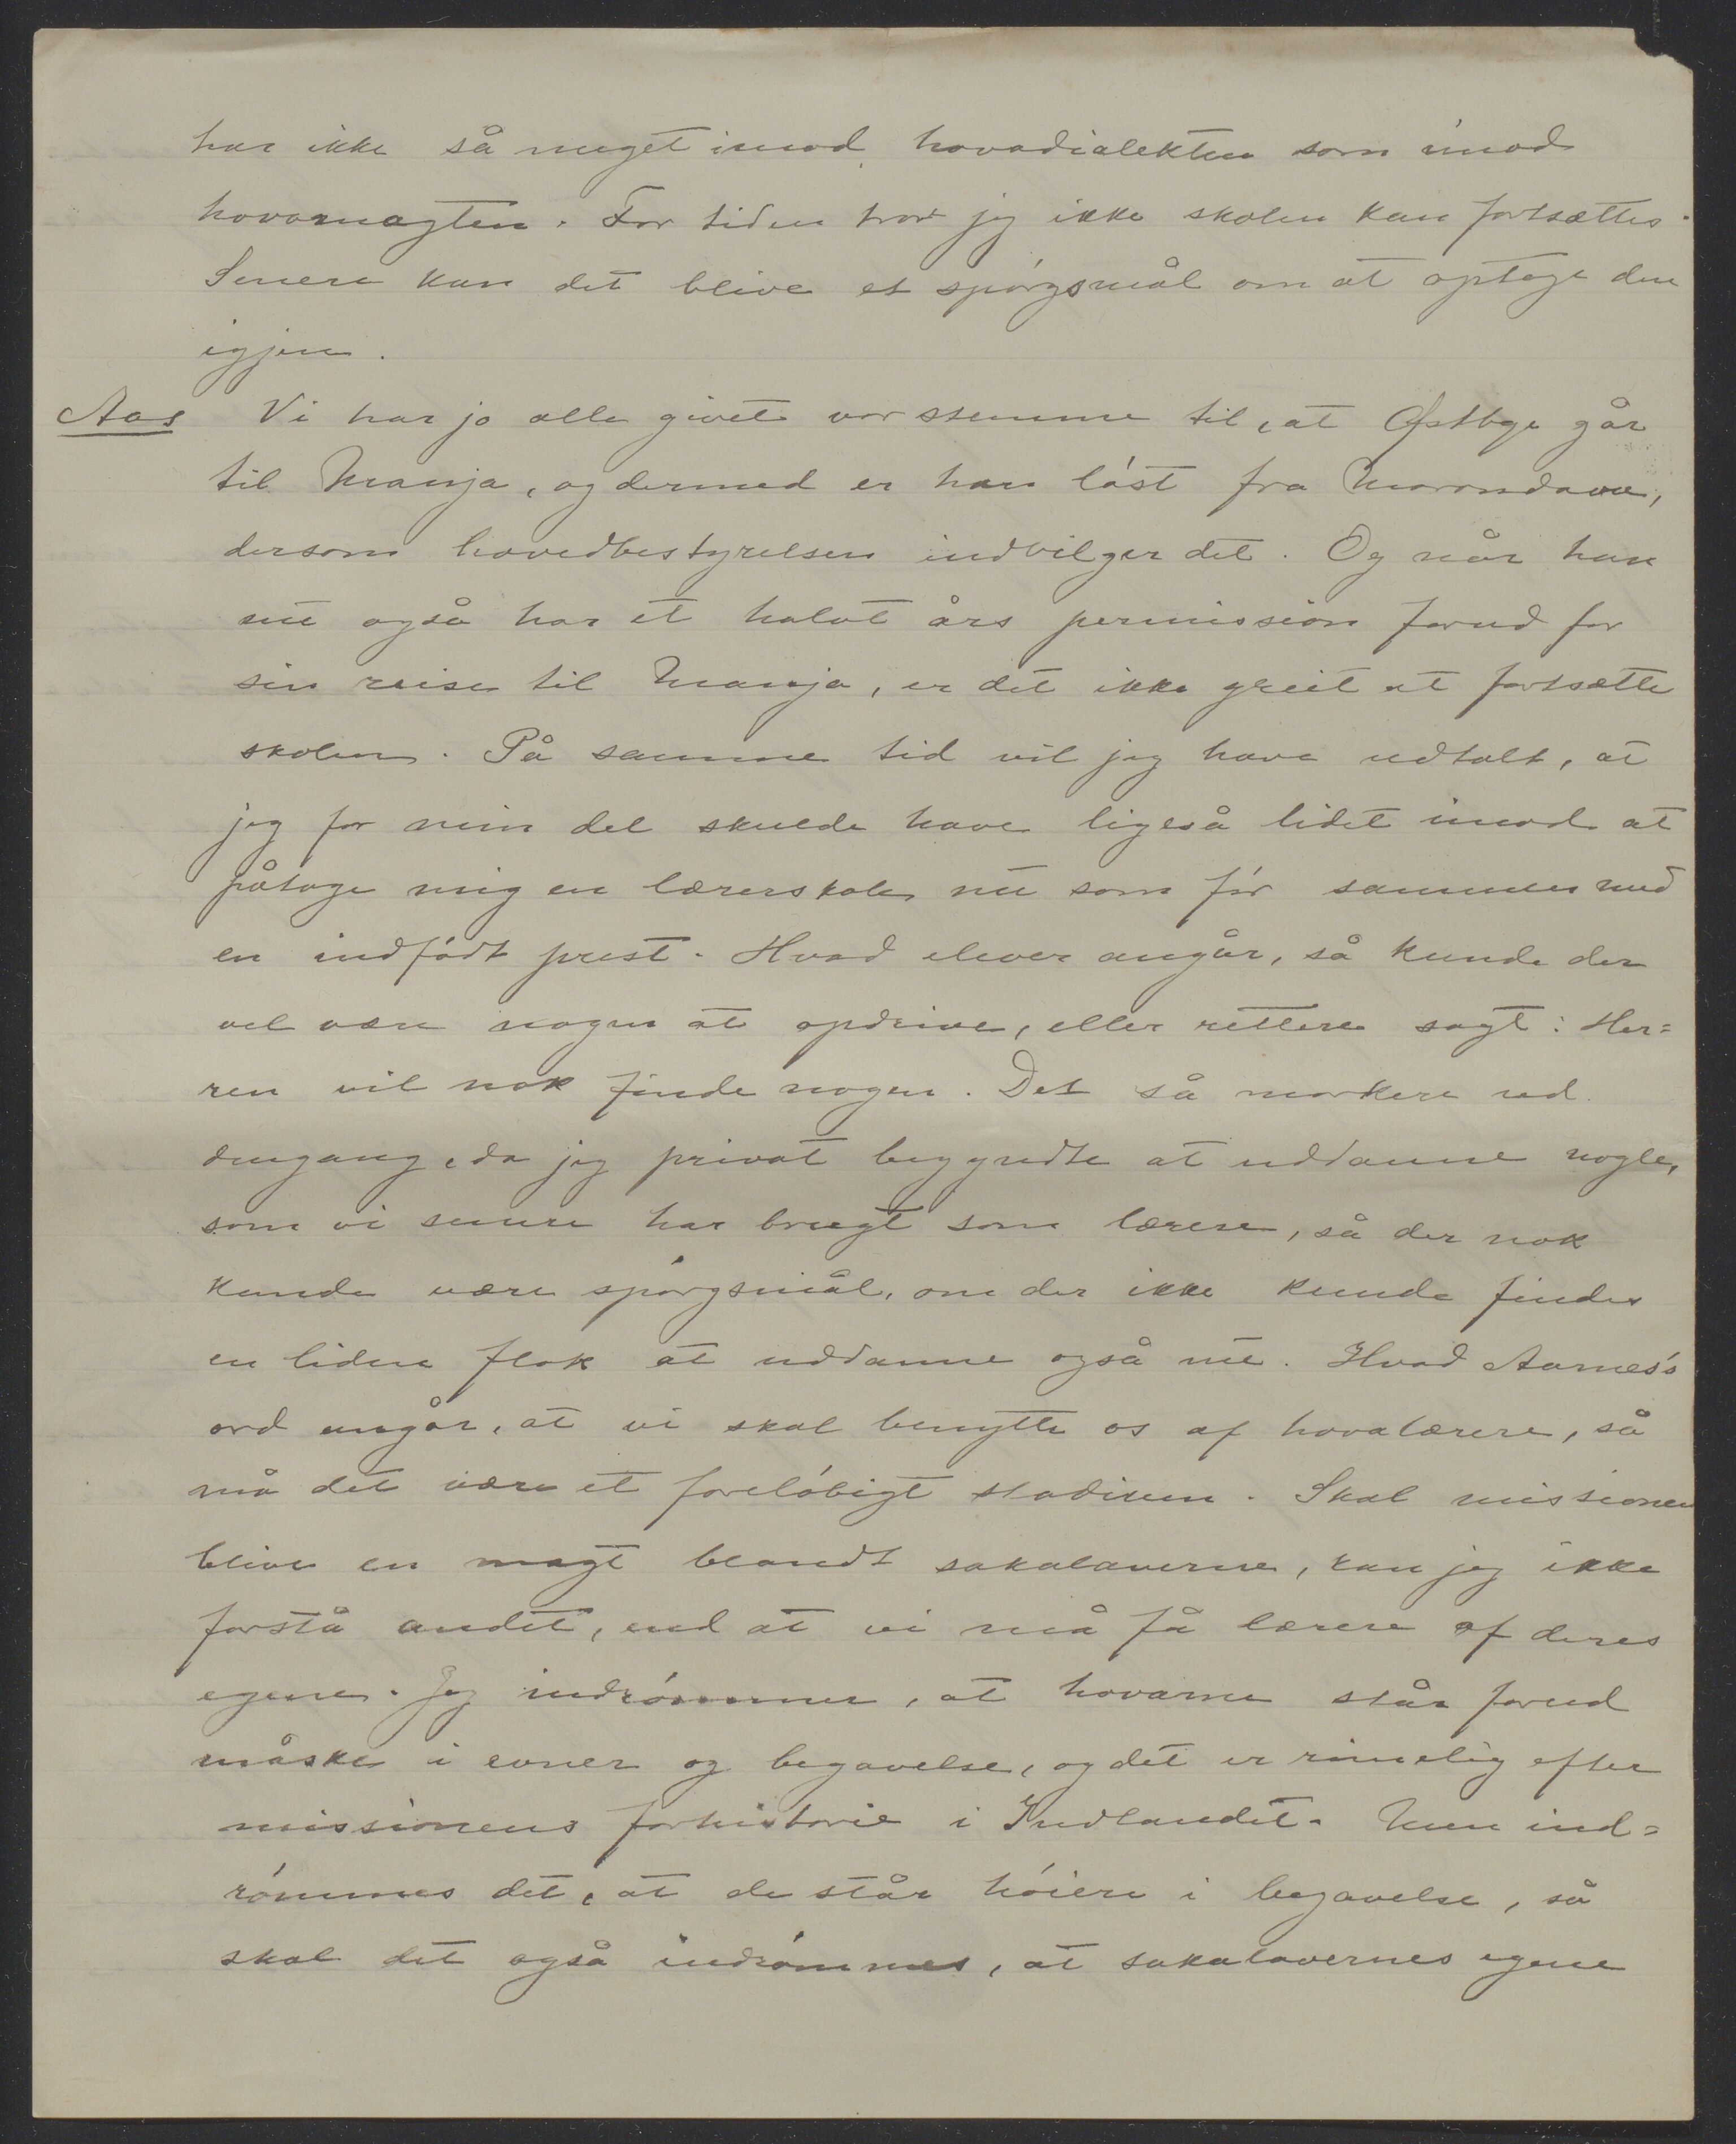 har ikke så meget imod hovadialekten som imod
hovamagten. For tiden tror jeg ikke skolen kan fortsættes.
Senere kan det blive et spórgsmål om at optage den
igjen.
Aas Vi har jo alle givet vor stemme til, at Østbye går
til Manja, og dermed er han lóst fra Morondava,
dersom hovedbestyrelsen indvilger det. Og når han
nu også har et halvt års permission forud for
sin reise til Manja, er det ikke greit at fortsætte
skolen. På samme tid vil jeg have udtalt, at
jeg for min del skulde have ligeså lidet imod at
påtage mig en lærerskole nu som fór sammen med
en indfódt prest. Hvad elever angår, så kunde der
vel være nogen at opdrive, eller rettere sagt: Her=
ren vil nok finde nogen. Det så mørkere ud
dengang, da jeg privat begyndte at uddanne nogle,
som vi senere har brugt som lærere, så der nok
kunde være spórgsmål, om der ikke kunde findes
en liden flok at uddanne også nu. Hvad Aarnes's
ord angår, at vi skal benytte os af hovalærere, så
må det være et forelóbigt stadium. Skal missionen
blive en magt blandt sakalaverne, kan jeg ikke
forstå andet, end at vi må få lærere af deres
egene. Jeg indrómmer, at hovarne står forud
måske i evner og begavelse, og det er rimelig efter
missionens forhistorie i Indlandet. Men ind=
rómmes det, at de står hóiere i begavelse, så
skal det også indrómmes, at sakalavernes egene